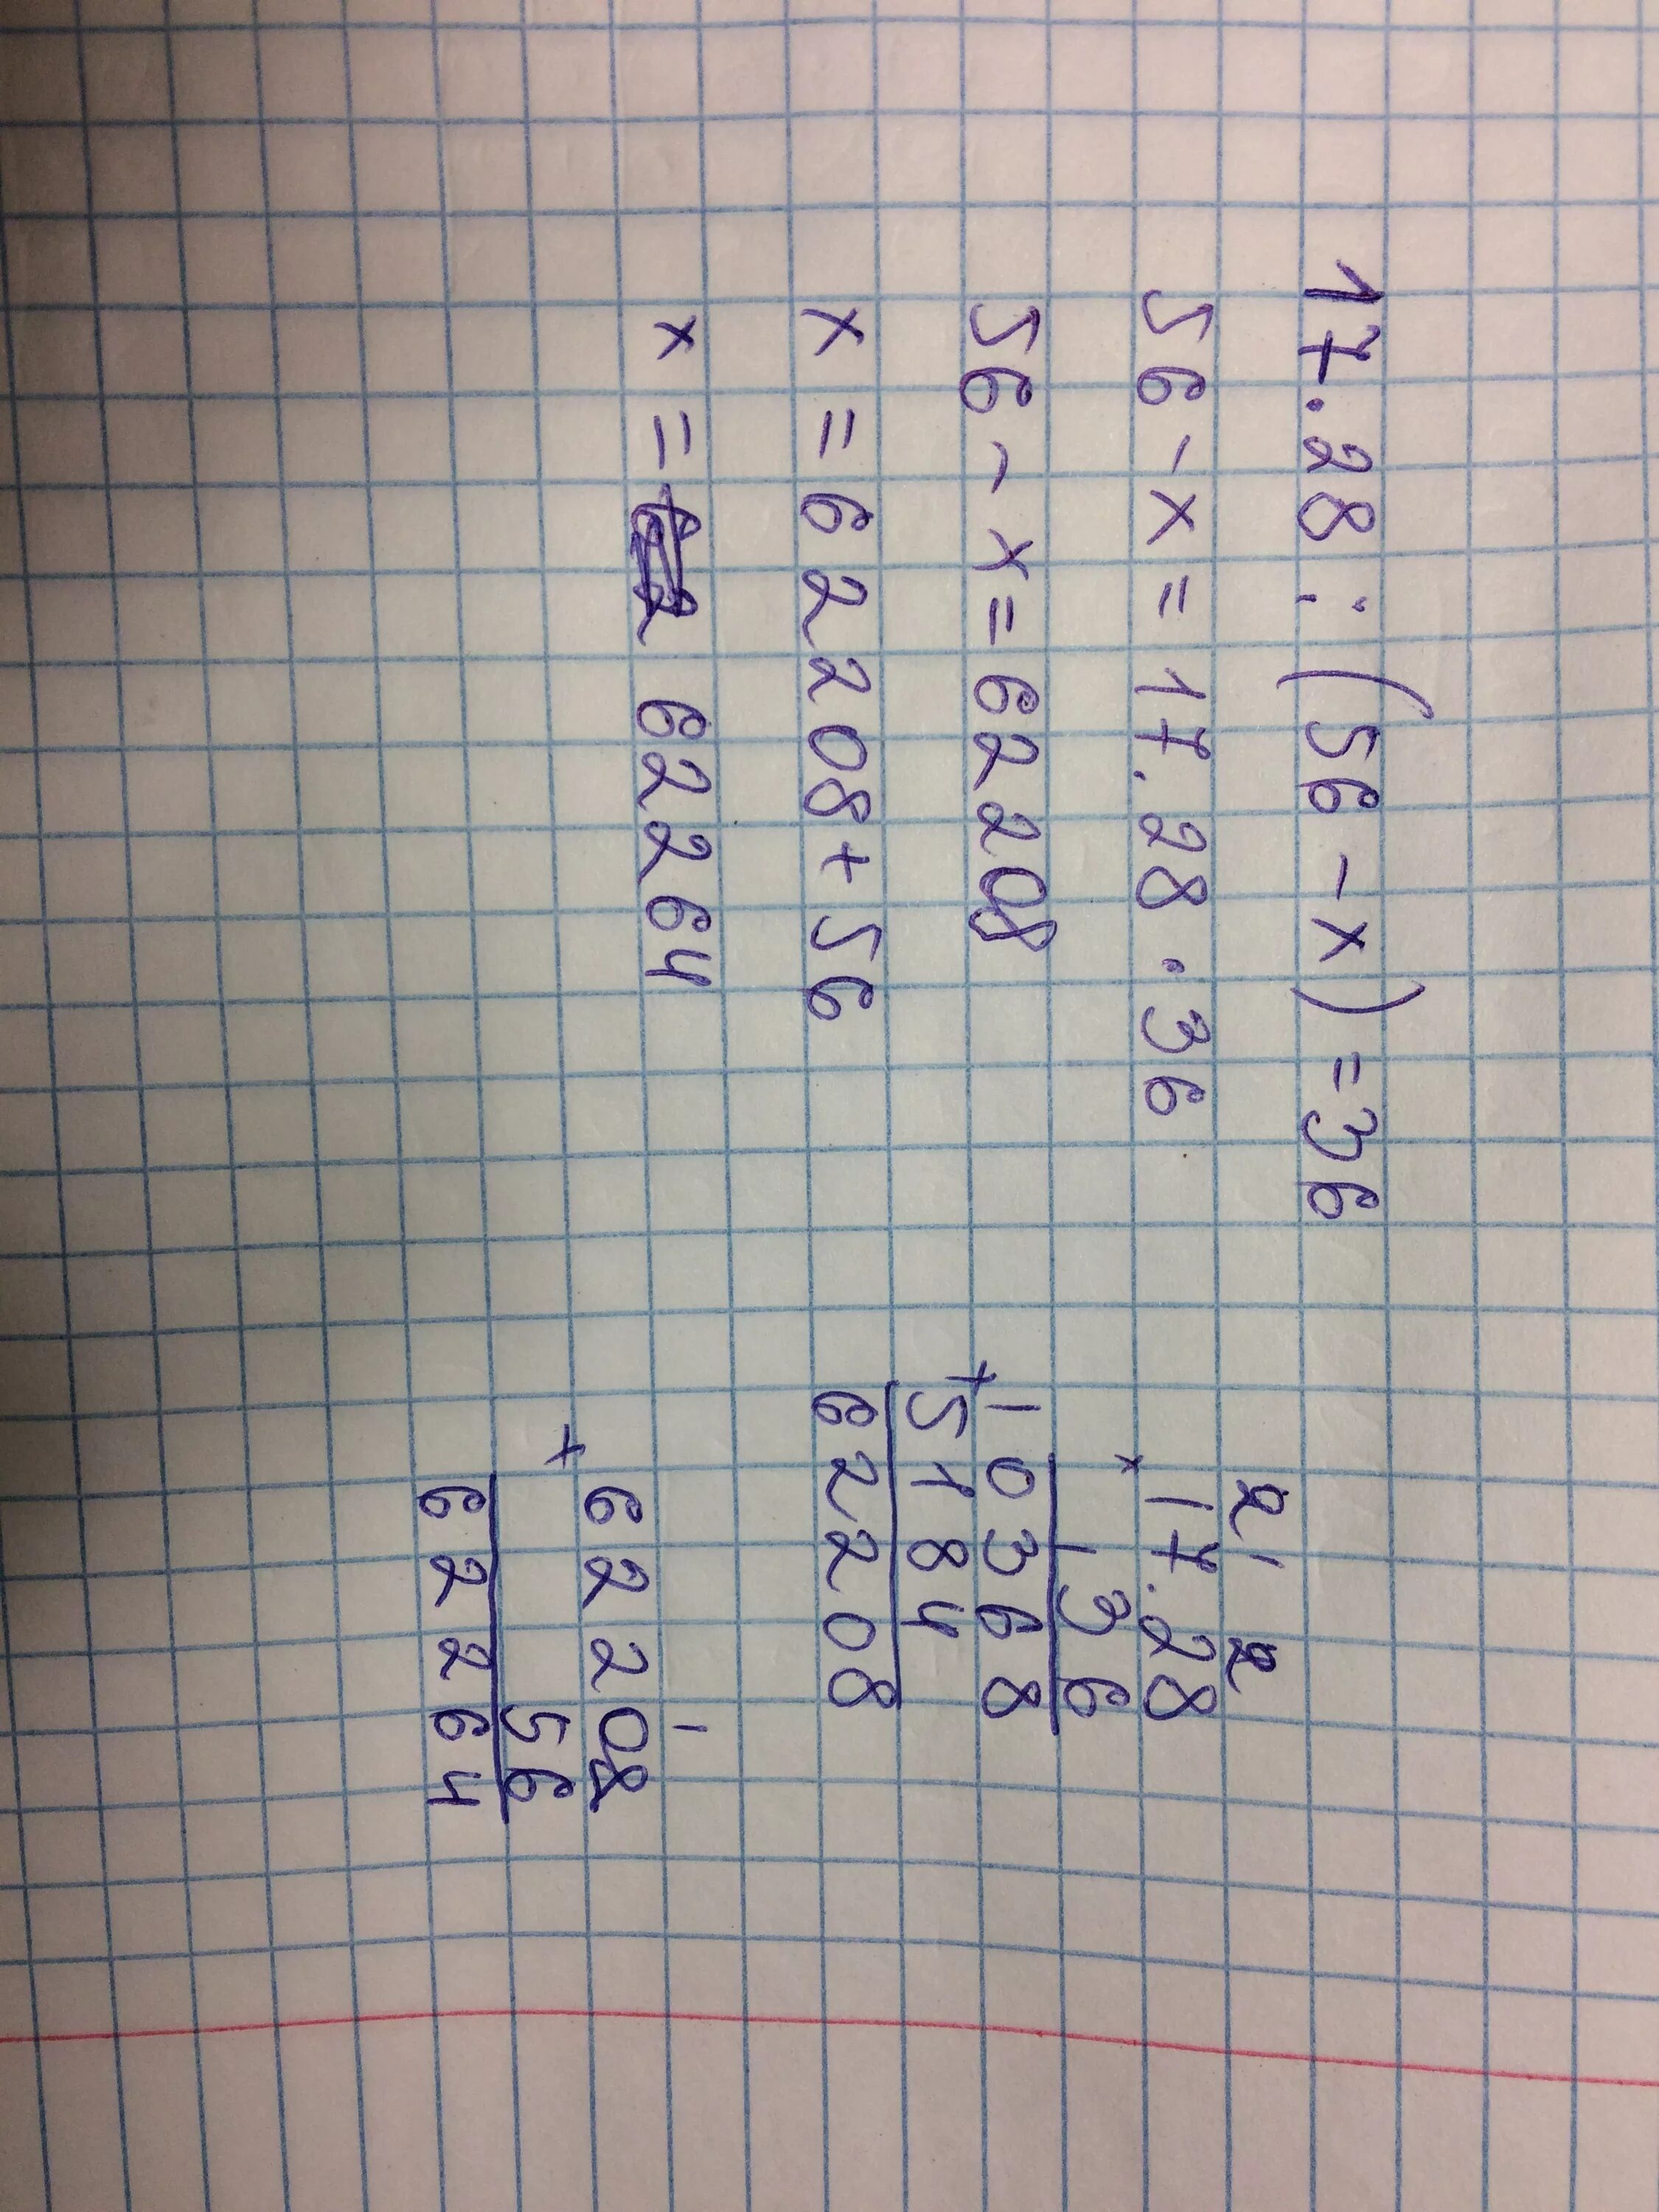 17.28:(56-x)=36
56-x=17.28·36
56-x=62208
x=62208+56
x= 62264
2 1 2
17.28
×
36
10368
+
5184
62208
1
62208
+
56
62264